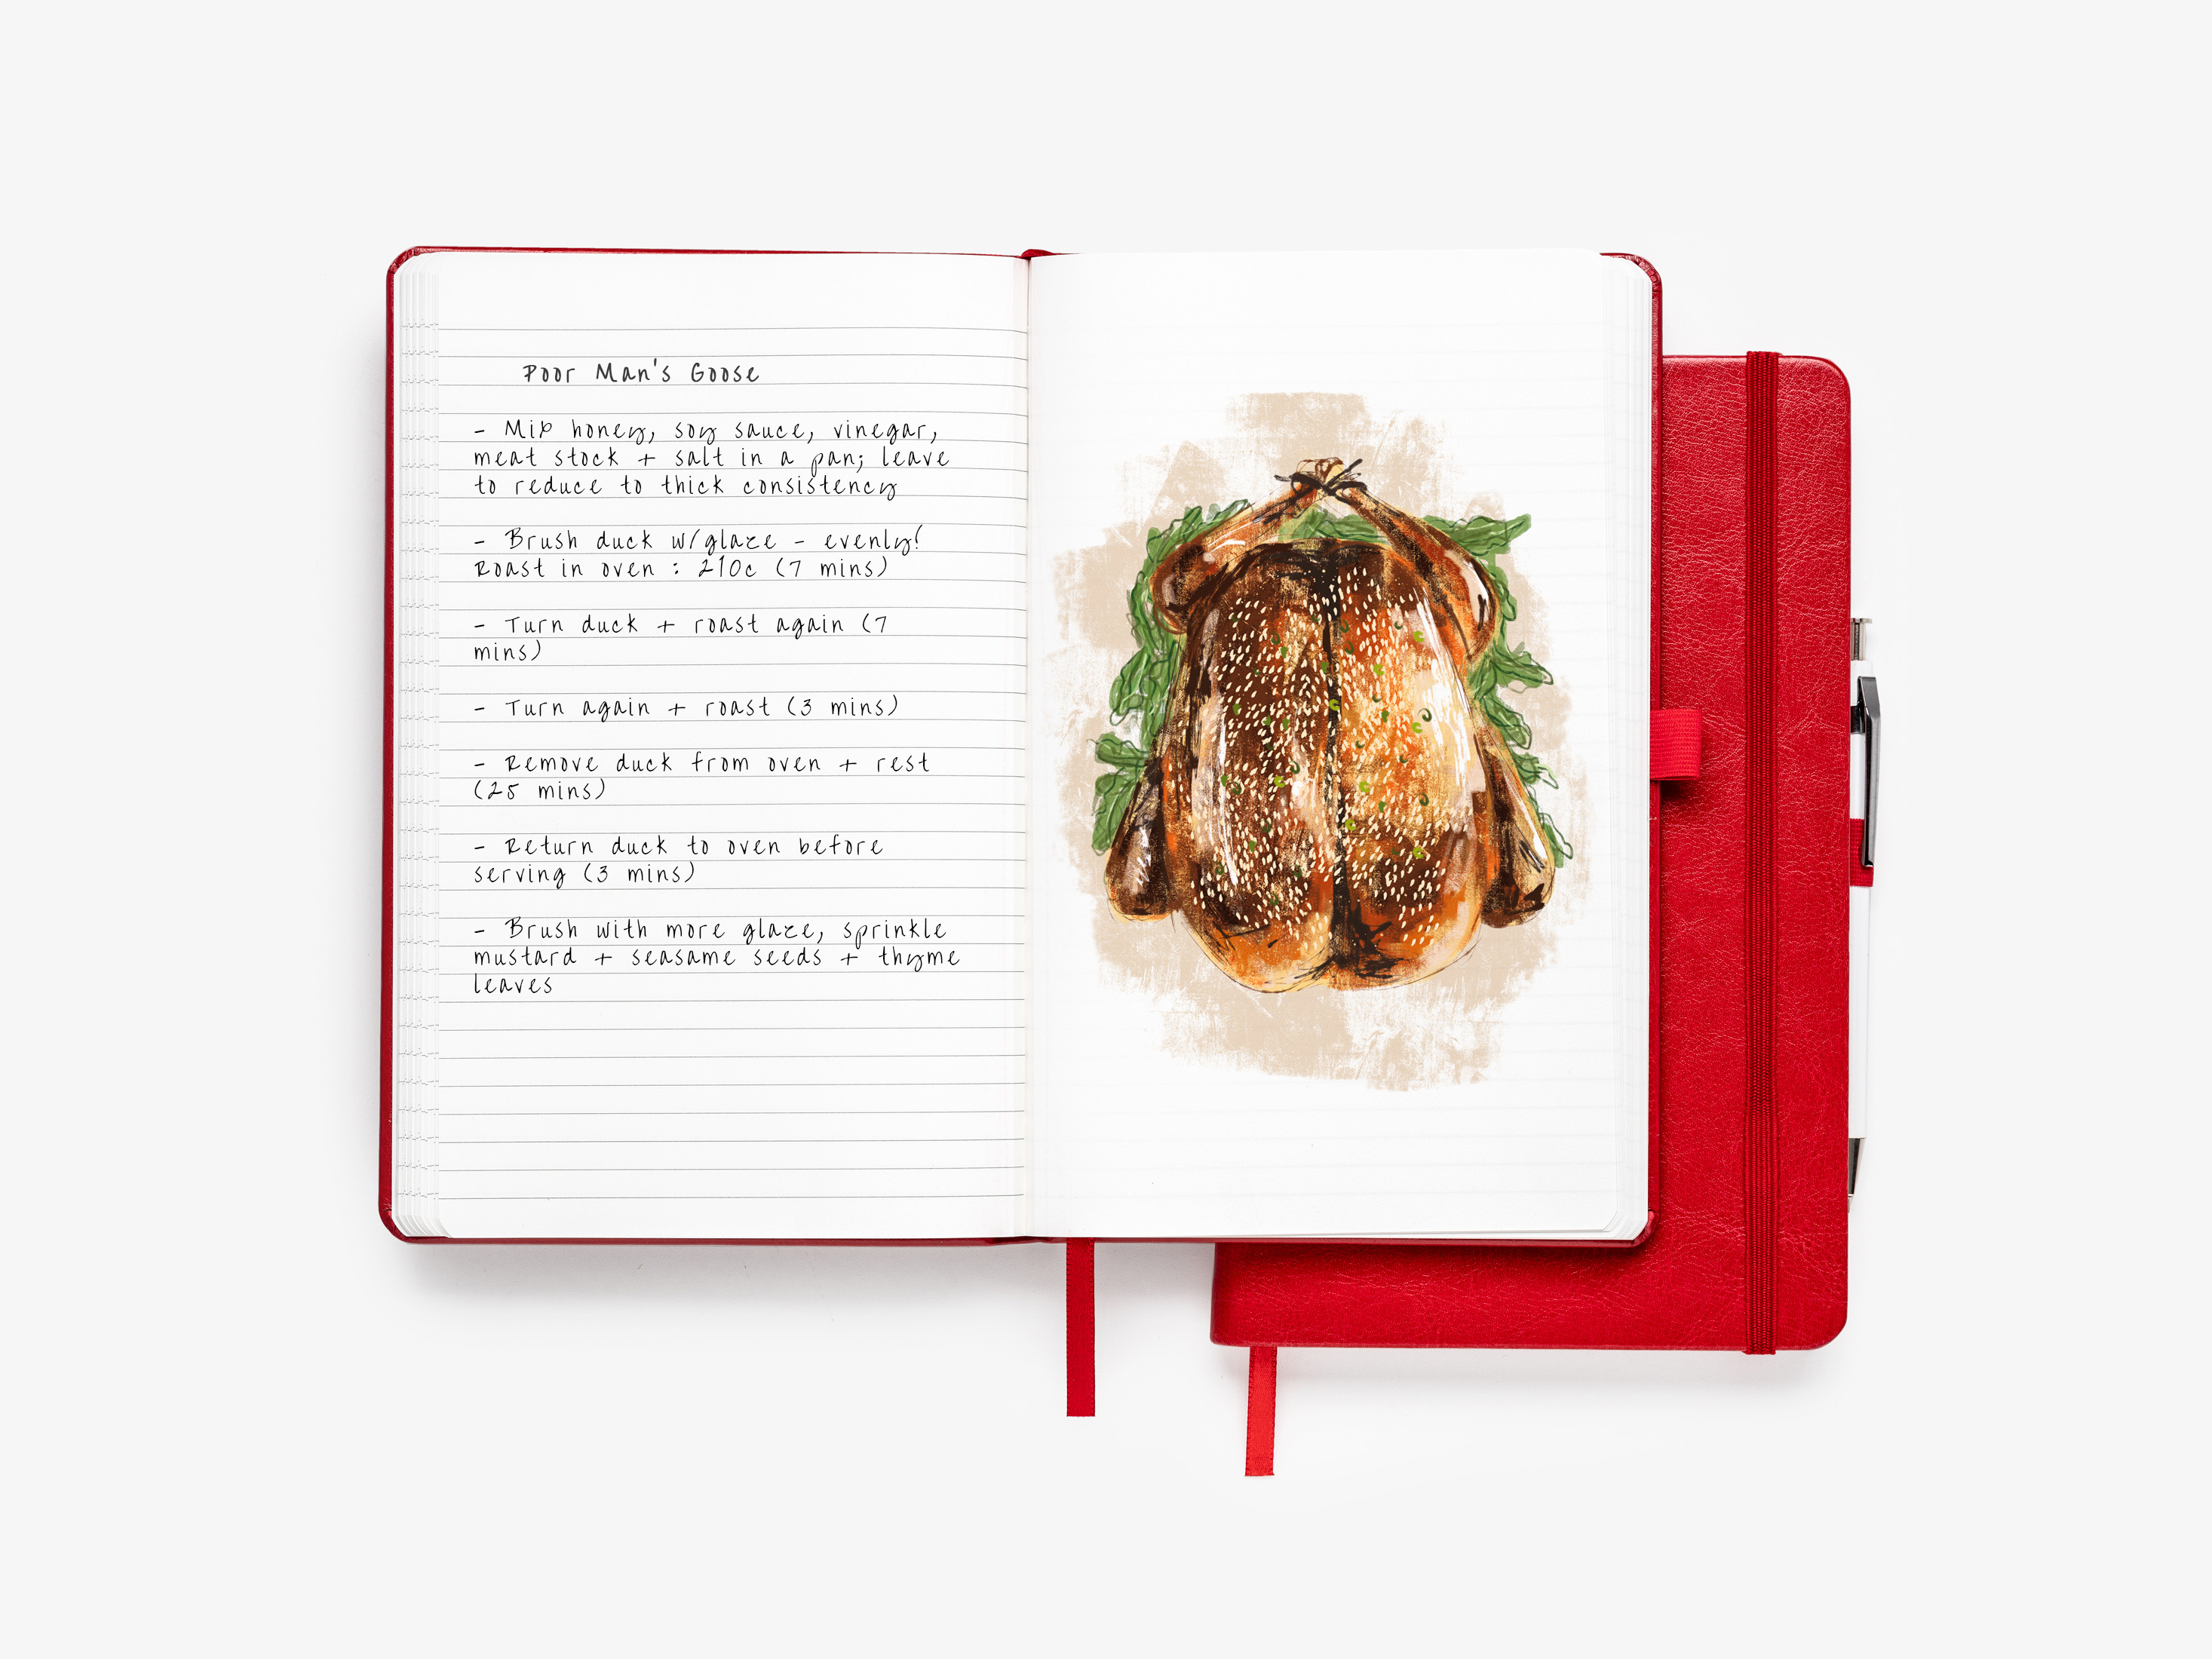 Poor Man's Goose
- Mix honey, soy sauce, vinegar,
meat stock + salt in a pan; leave
to reduce to thick consistency
- Brush duck w/glaze - evenly!
Roast in oven : 210c (7 mins)
- Turn duck + roast again (7
mins)
- Turn again + roast (3 mins)
- Remove duck from oven + rest
(25 mins)
- Return duck to oven before
serving (3 mins)
- Brush with more glaze, sprinkle
mustard + seasame seeds + thyme
leaves